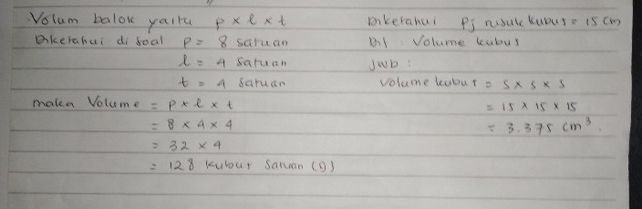 Volum balok yaitu p x l x t
Diketahui di soal p = 8 satuan
l = 4 satuan
t = 4 satuan
maka Volume = p x l x t
= 8 x 4 x 4
= 32 x 4
= 128 kubus satuan (D)
Diketahui Pj rusuk kubus = 15 cm
Dit : Volume kubus
jwb :
Volume kubus = s x s x s
= 15 x 15 x 15
= 3.375 cm³.